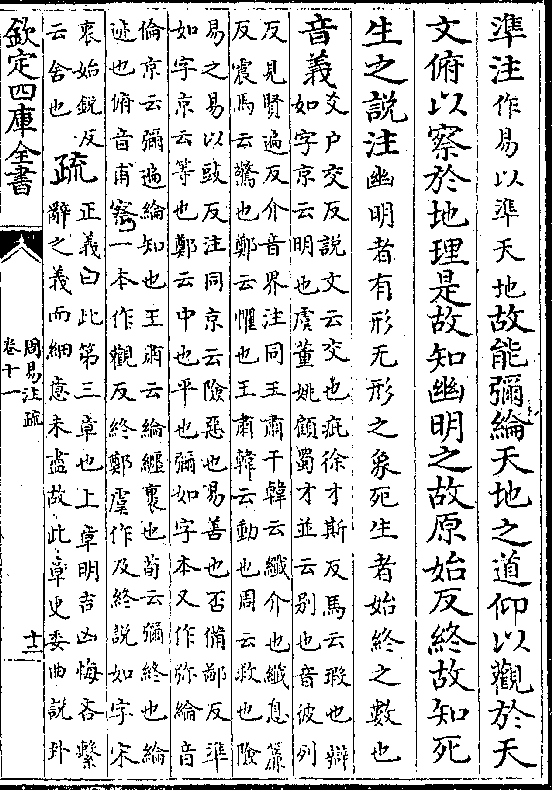 準注作易以準天地故能彌綸天地之道仰以觀於天
文俯以察於地理是故知幽明之故原始反終故知死
生之說注幽明者有形无形之象死生者始終之數也
音義
爻户交反說文云交也疵徐才斯反馬云瑕也辯
如字京云明也虞董姚顧蜀才並云别也音彼列
反見賢遍反介音界注同王肅干韓云纖介也纖息㢘
反震馬云驚也鄭云懼也王肅韓云動也周云救也險
易之易以豉反注同京云險惡也易善也否備鄙反準
如字京云等也鄭云中也平也彌如字本又作弥綸音
倫京云彌遍綸知也王肅云綸纏裹也荀云彌終也綸
迹也俯音甫察一本作觀反終鄭虞作及終說如字宋
衷始銳反
云舍也
疏
正義曰此第三章也上章明吉凶悔吝繫
辭之義而細意未盡故此章更委曲說卦
欽定四庫全書
周易注疏
卷十一
十二